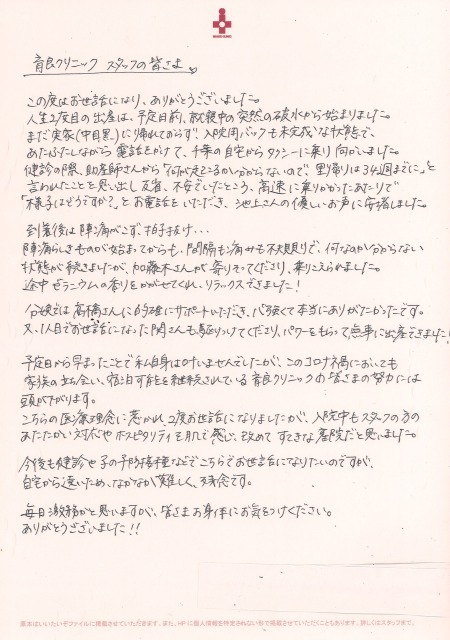 育良クリニック スタッフの皆さま
この度はお世話になり、ありがとうございました。
人生2度目の出産は、予定日前、就寝中の突然の破水から始まりました。
まだ実家(中目黒)に帰れておらず、入院用バックも未完成な状態で、
あたふたしながら電話をかけて、千葉の自宅からタクシーに乗り向かいました。
健診の際、助産師さんから「何が起こるか分からないので里帰りは34週までに」と
言われたことを思い出し反省、不安でいたところ、高速に乗りかかったあたりで
「様子はどうですか?」とお電話をいただき、池上さんの優しいお声に安堵しました。
到着後は陣痛がこず拍子抜け…
陣痛らしきものが始まってからも、間隔も痛みも不規則で、何なのか分からない
状態が続きましたが、加藤木さんが寄りそってくださり、乗りこえられました。
途中ゼラニウムの香りをかがせてくれ、リラックスできました!
分娩は高橋さんに的確にサポートいただき、心強くて本当にありがたかったです。
又、1人目でお世話になった関さんも駆けつけてくださり、パワーをもらって無事に出産できました!
予定日から早まったことで私自身は叶いませんでしたが、このコロナ禍においても
家族の立ち会い、宿泊可能を継続されている育良クリニックの皆さまの努力には
頭が下がります。
こちらの医療理念に惹かれ、2度お世話になりましたが、入院中もスタッフの方の
あたたかい対応やホスピタリティを肌で感じ、改めてすてきな産院だと思いました。
今後も健診や子の予防接種などでこちらでお世話になりたいのですが、
自宅から遠いため、なかなか難しく、残念です。
毎日激務かと思いますが、皆さまお身体にお気をつけください。
ありがとうございました!!
原本はいいたいぞファイルに掲載させていただきます。また、HPに個人情報を特定されない形で掲載させていただくこともあります。詳しくはスタッフまで。